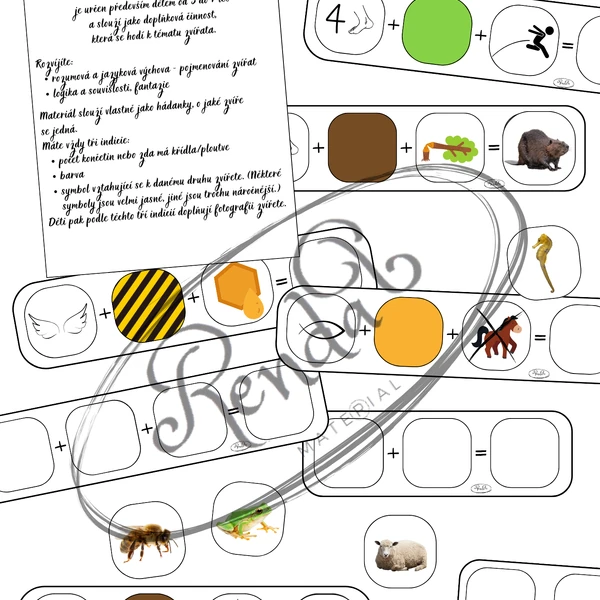 je určen především dětem od 3 do 7 let
a slouží jako doplňková činnost,
která se hodí k tématu zvířata.
Rozvíjíte:
• rozumová a jazyková výchova - pojmenování zvířat
• logika a souvislosti, fantazie
Materiál slouží vlastně jako hádanky, o jaké zvíře
se jedná.
Máte vždy tři indicie:
• počet končetin nebo zda má křídla/ploutve
• barva
• symbol vztahující se k danému druhu zvířete. (Některé
symboly jsou velmi jasné, jiné jsou trochu náročnější.)
Děti pak podle těchto tří indicií doplňují fotografii zvířete.
4 + + =
+ + =
+ + =
+ + =
+ + =
+ =
Renda
MATERIAL